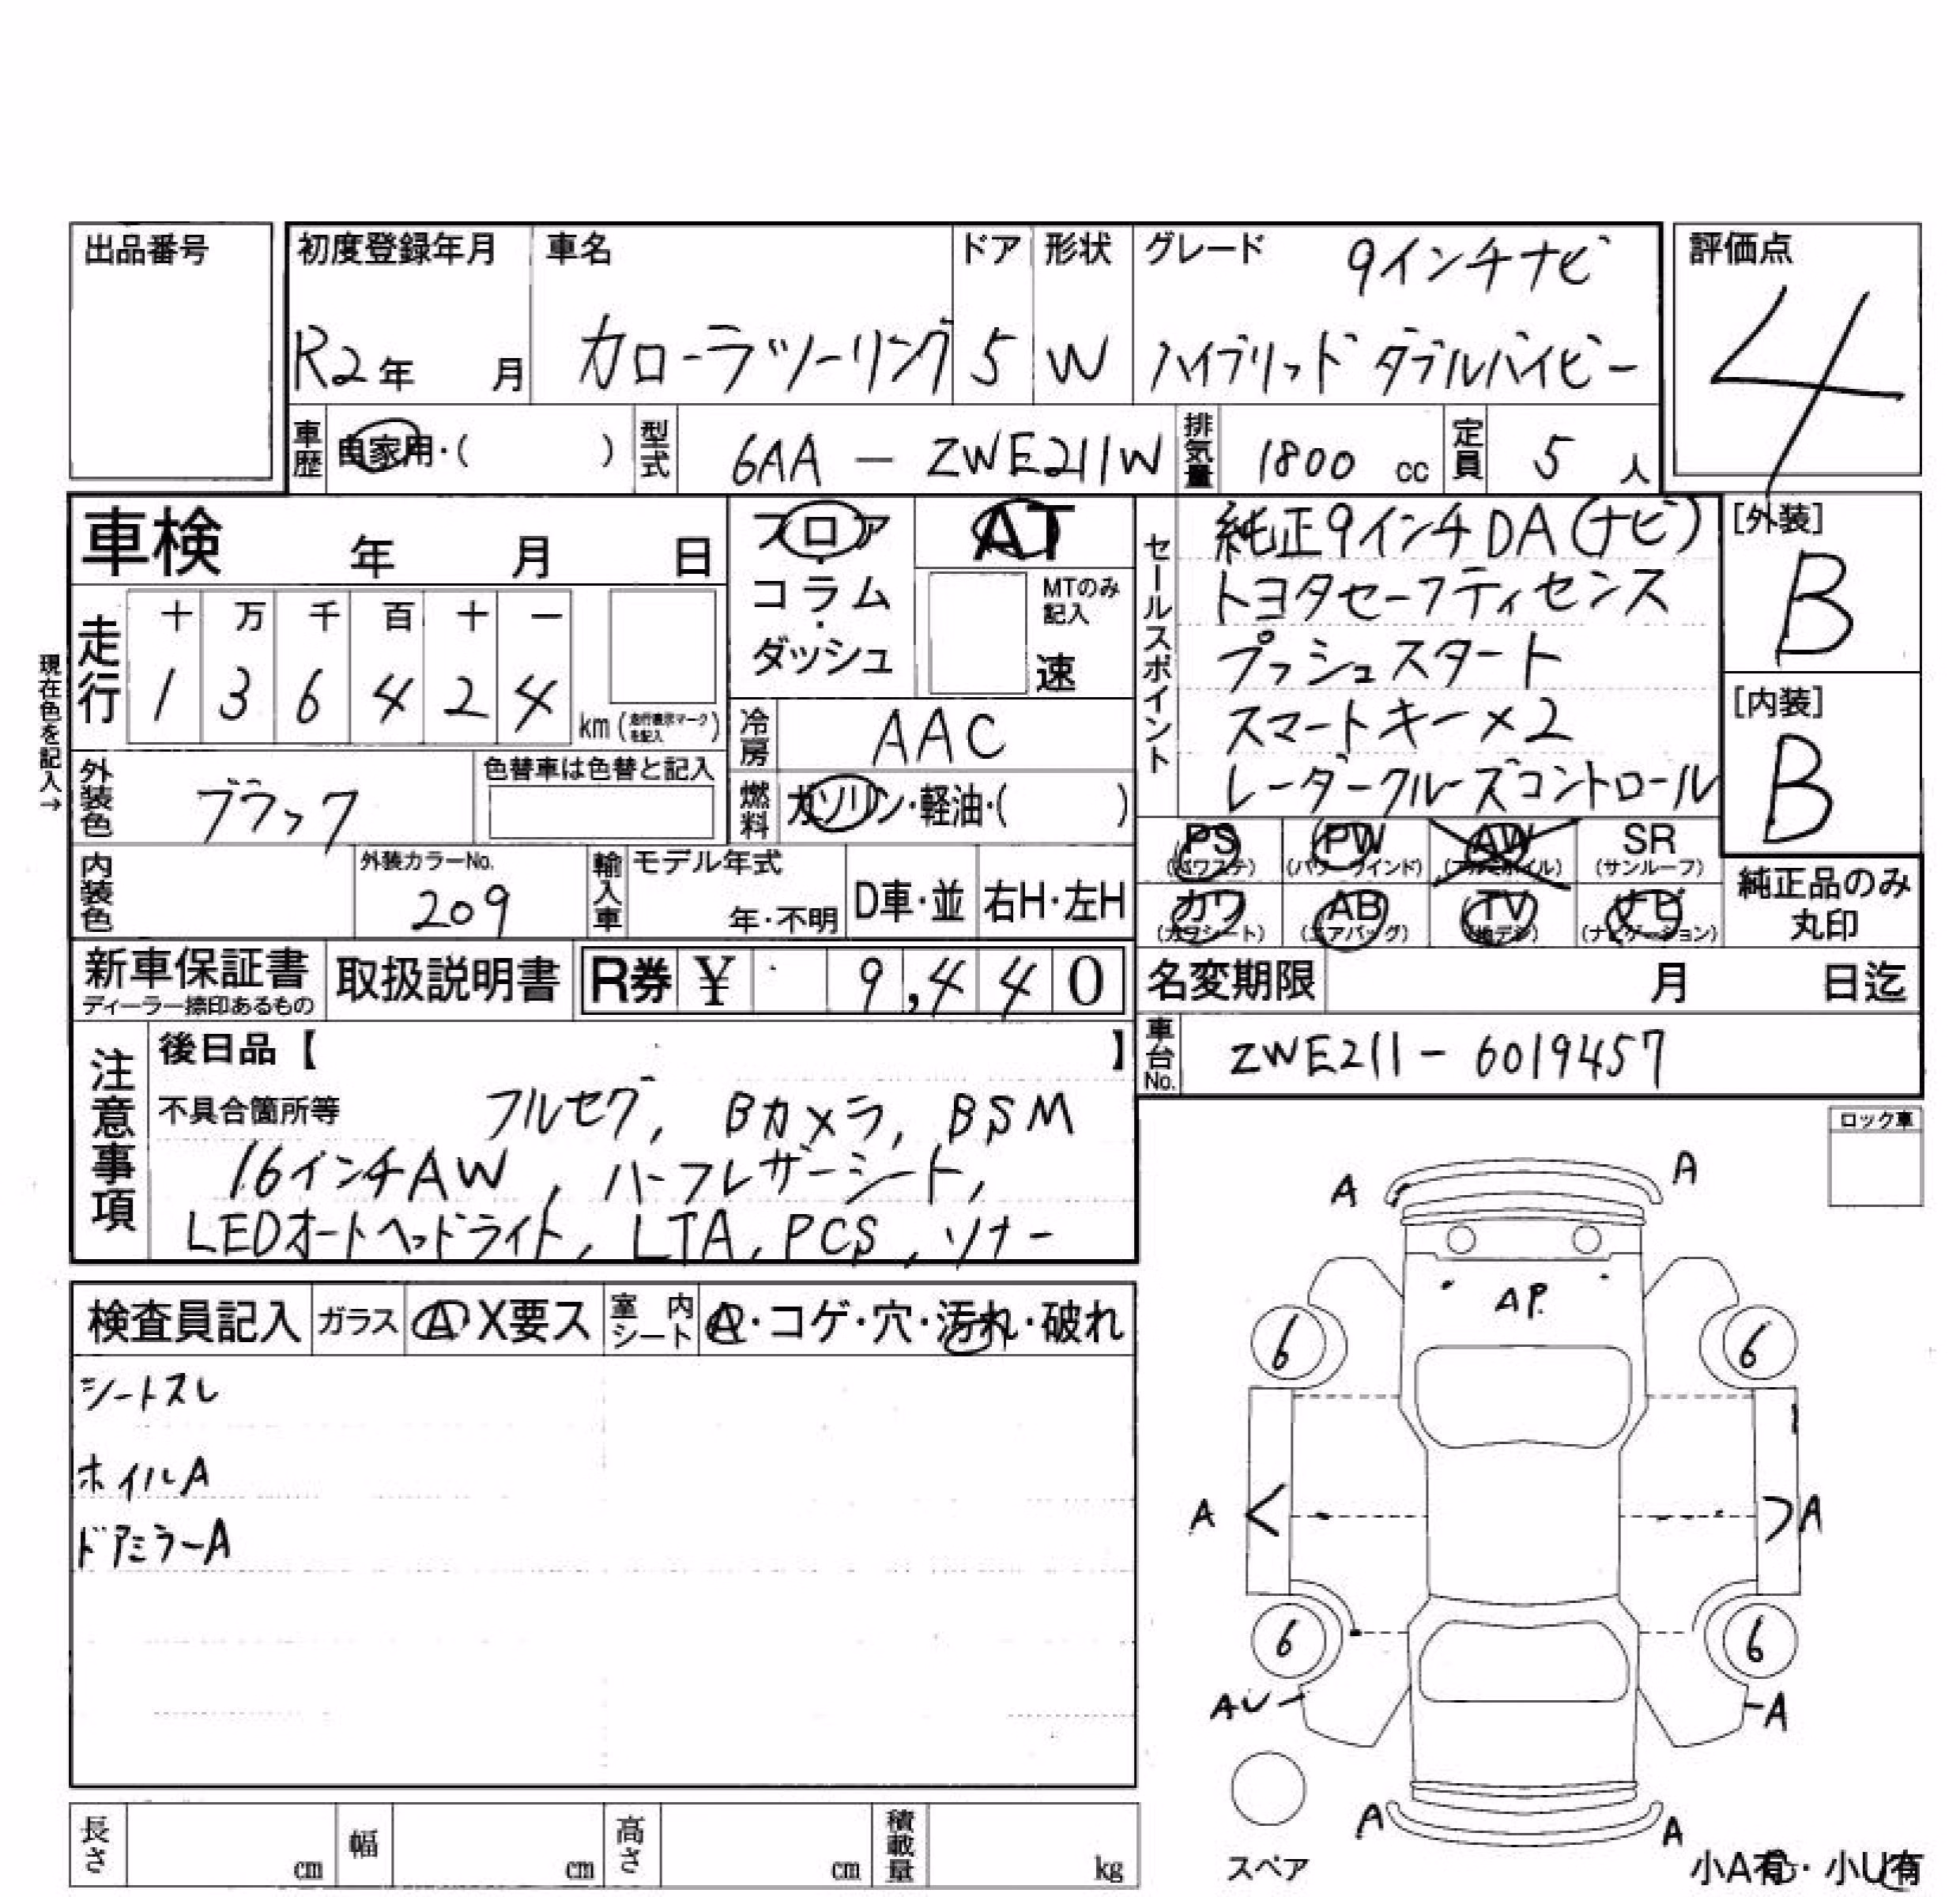 出品番号
初度登録年月 車名 ドア 形状 グレード 9インチナビ 評価点
R2年 月 カローラツーリング 5 W ハイブリッド ダブルバイビー 4
車歴 自家用・( ) 型式 6AA - ZWE211W 排気量 1800 cc 定員 5 人
車検 年 月 日
フロア・コラム・ダッシュ
AT
MTのみ記入
速
現在色を記入→
走行
十 万 千 百 十 一
1 3 6 4 2 4 km (走行表示マークを記入)
冷房 AAC
外装色 ブラック 色替車は色替と記入
燃料 ガソリン・軽油・( )
内装色 外装カラーNo. 209 輸入車 モデル年式 年・不明 D車・並 右H・左H
セールスポイント
純正9インチDA(ナビ)
トヨタセーフティセンス
プッシュスタート
スマートキー×2
レーダークルーズコントロール
[外装]
B
[内装]
B
PS PW AW SR
(パワステ) (パワーウインド) (アルミホイル) (サンルーフ)
カワ AB TV ナビ
(カワシート) (エアバッグ) (地デジ) (ナビゲーション)
純正品のみ
丸印
新車保証書 取扱説明書 R券 ¥ 9,440
ディーラー捺印あるもの
名変期限 月 日迄
車台No. ZWE211-6019457
注意事項
後日品【 】
不具合箇所等 フルセグ, Bカメラ, BSM
16インチAW, ハーフレザーシート,
LEDオートヘッドライト, LTA, PCS, ソナー
ロック車
検査員記入 ガラス A X要ス 室内シート A・コゲ・穴・汚れ・破れ
シートスレ
ホイルA
ドアミラーA
A A
AP.
6 6
A A
6 6
AU A
A A
スペア
小A有・小U有
長さ cm 幅 cm 高さ cm 積載量 kg